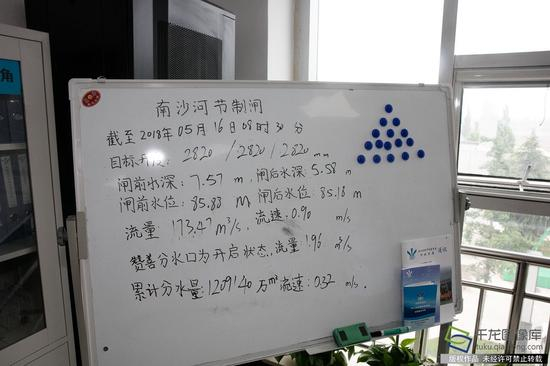 角
南沙河节制闸
截至2018年05月16日08时30分
目标开度: 2820/2820/2820 mm
闸前水深: 7.57 m, 闸后水深: 5.58 m
闸前水位: 85.88 m, 闸后水位: 85.18 m
流量: 173.47 m³/s, 流速: 0.90 m/s
赞善分水口为开启状态, 流量 1.96 m³/s
累计分水量: 1209140 万m³ 流速: 0.32 m/s.
千龙图像库
tuku.qianlong.com
版权作品 未经许可禁止转载